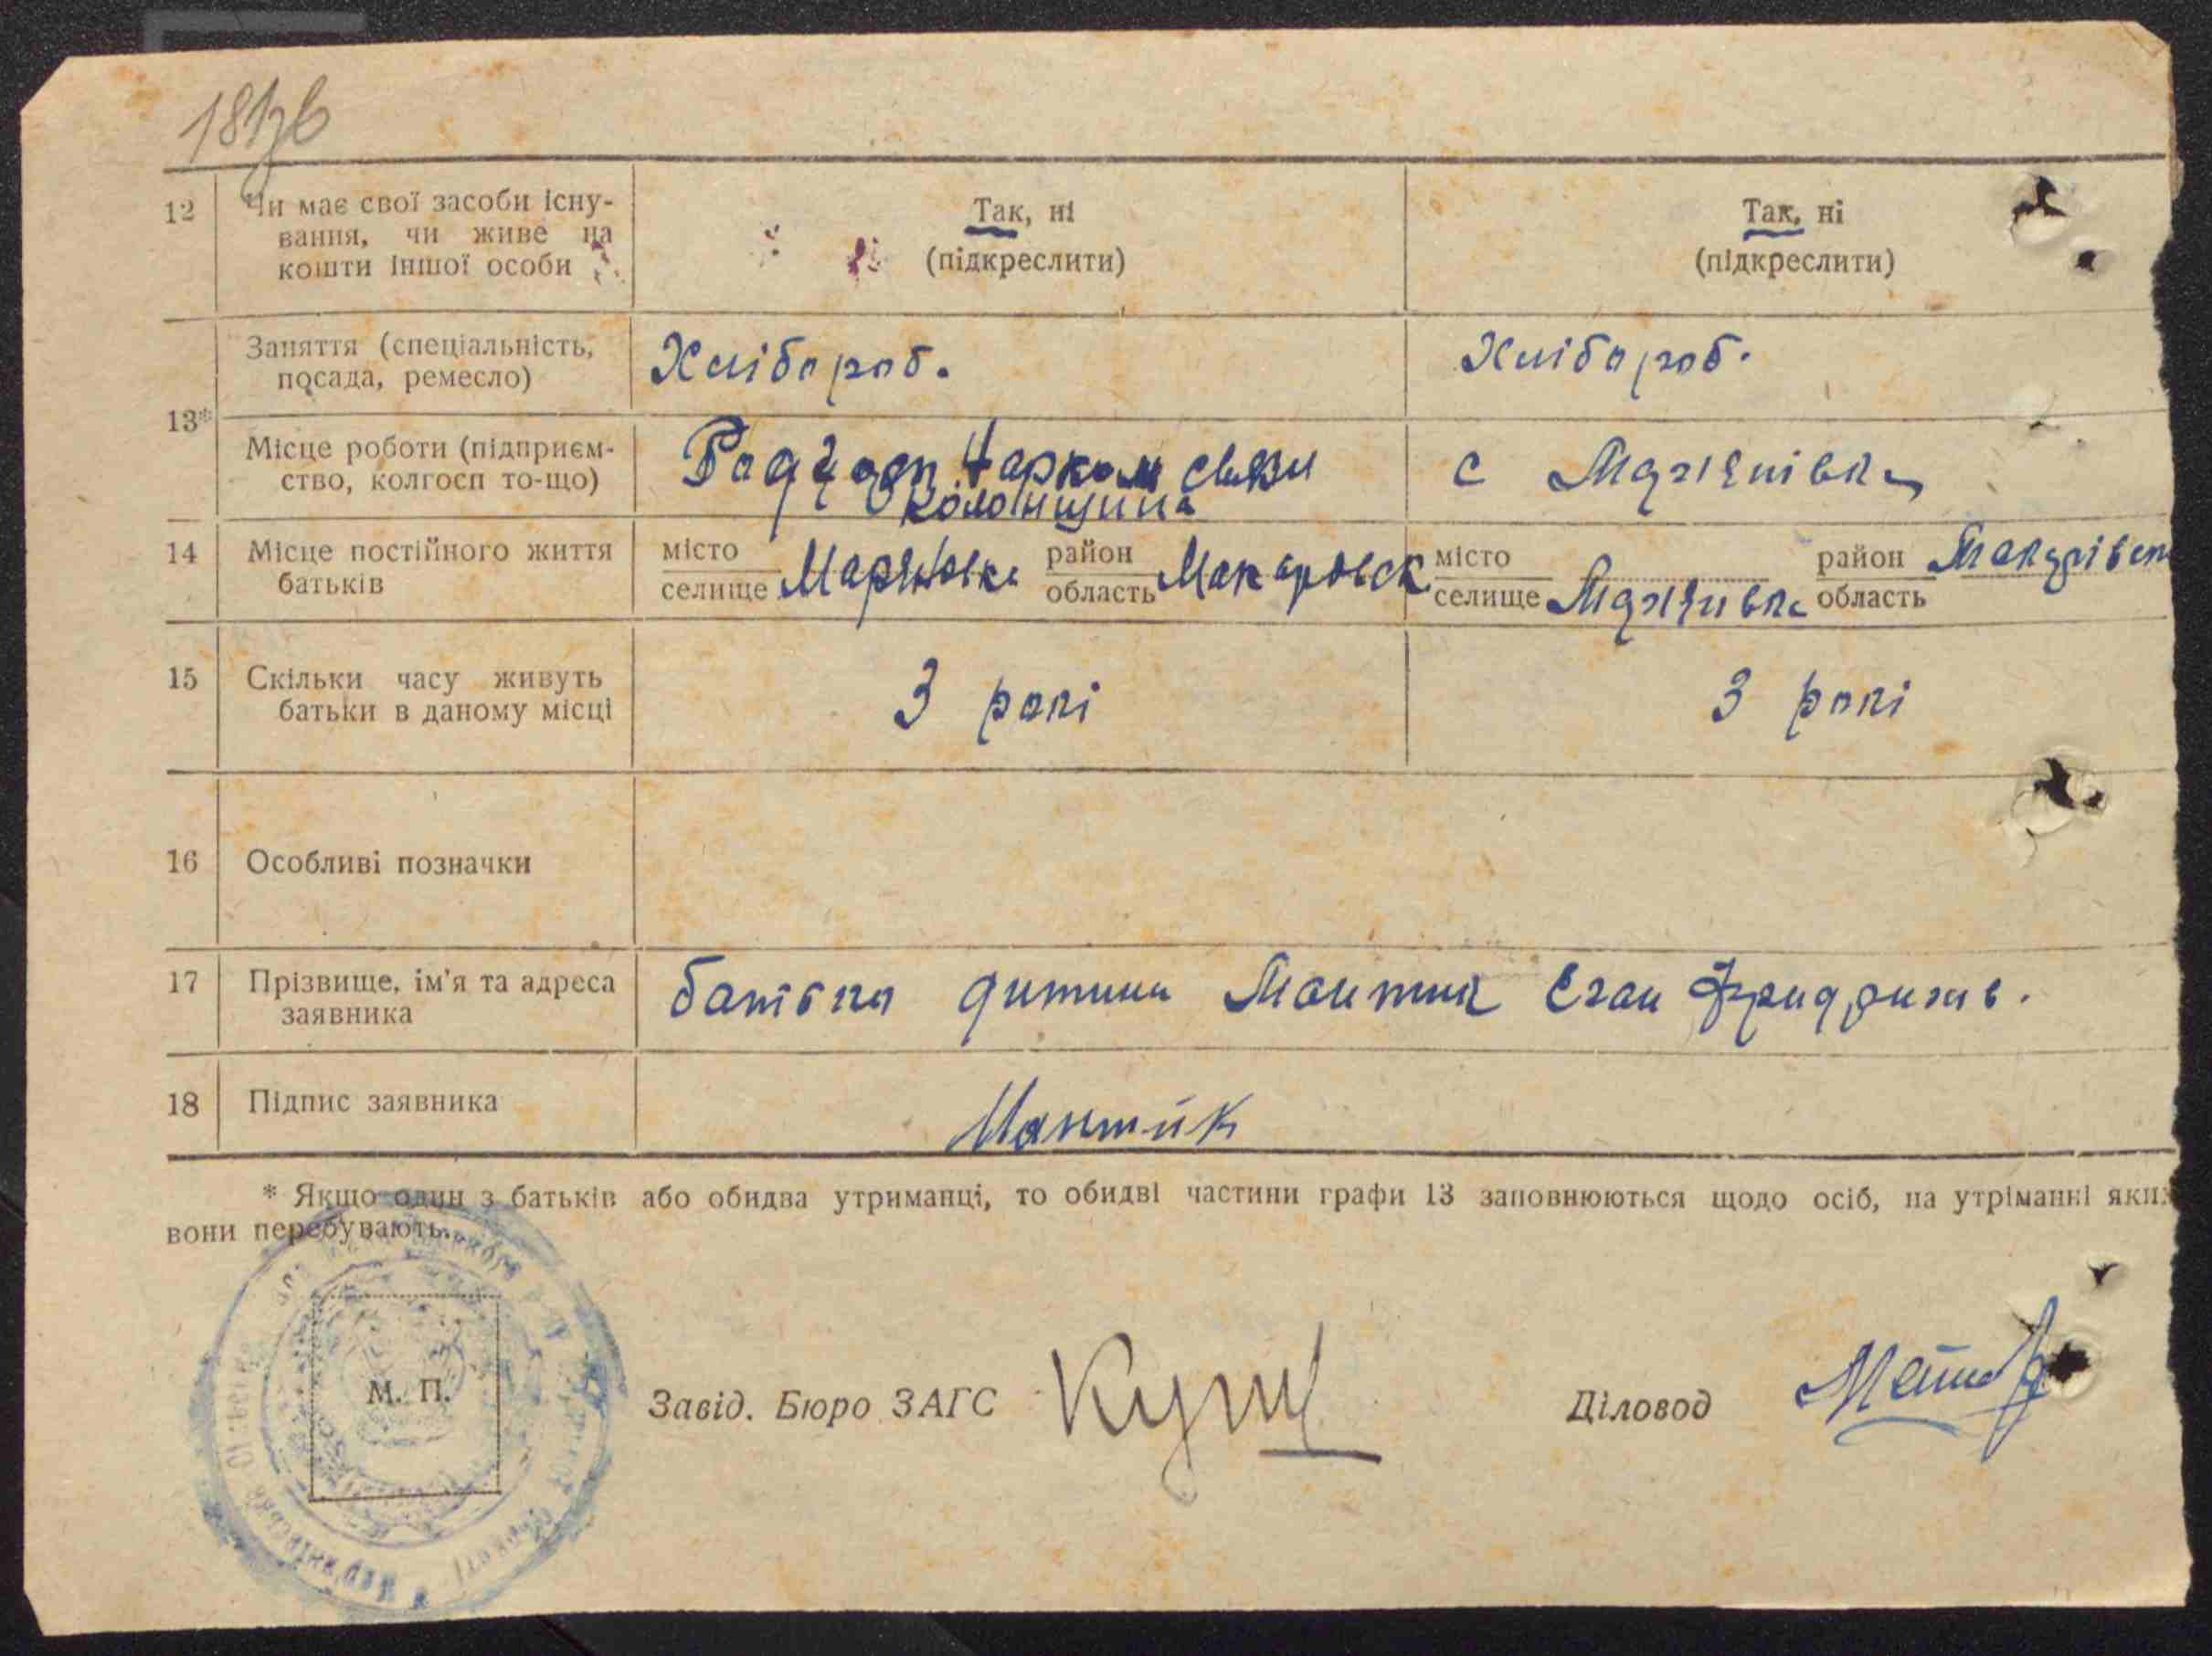 181зв
12 Чи має свої засоби існу-
вання, чи живе на
кошти іншої особи
Так, ні
(підкреслити)
Так, ні
(підкреслити)
13*
Заняття (спеціальність,
посада, ремесло)
Хлібороб.
Хлібороб.
Місце роботи (підприєм-
ство, колгосп то-що)
Радгосп Нарком связи
Колонщина
с Мар'янівка
14 Місце постійного життя
батьків
місто
селище Марянівка район
область Макаровск
місто
селище Мар'янівка район
область Макарівськ
15 Скільки часу живуть
батьки в даному місці
3 роки
3 роки
16 Особливі позначки
17 Прізвище, ім'я та адреса
заявника
батько дитини Мантик Еган Фридрихів.
18 Підпис заявника
Мантик
* Якщо один з батьків або обидва утриманці, то обидві частини графи 13 заповнюються щодо осіб, на утріманні яких
вони перебувають.
М. П.
Завід. Бюро ЗАГС
Діловод